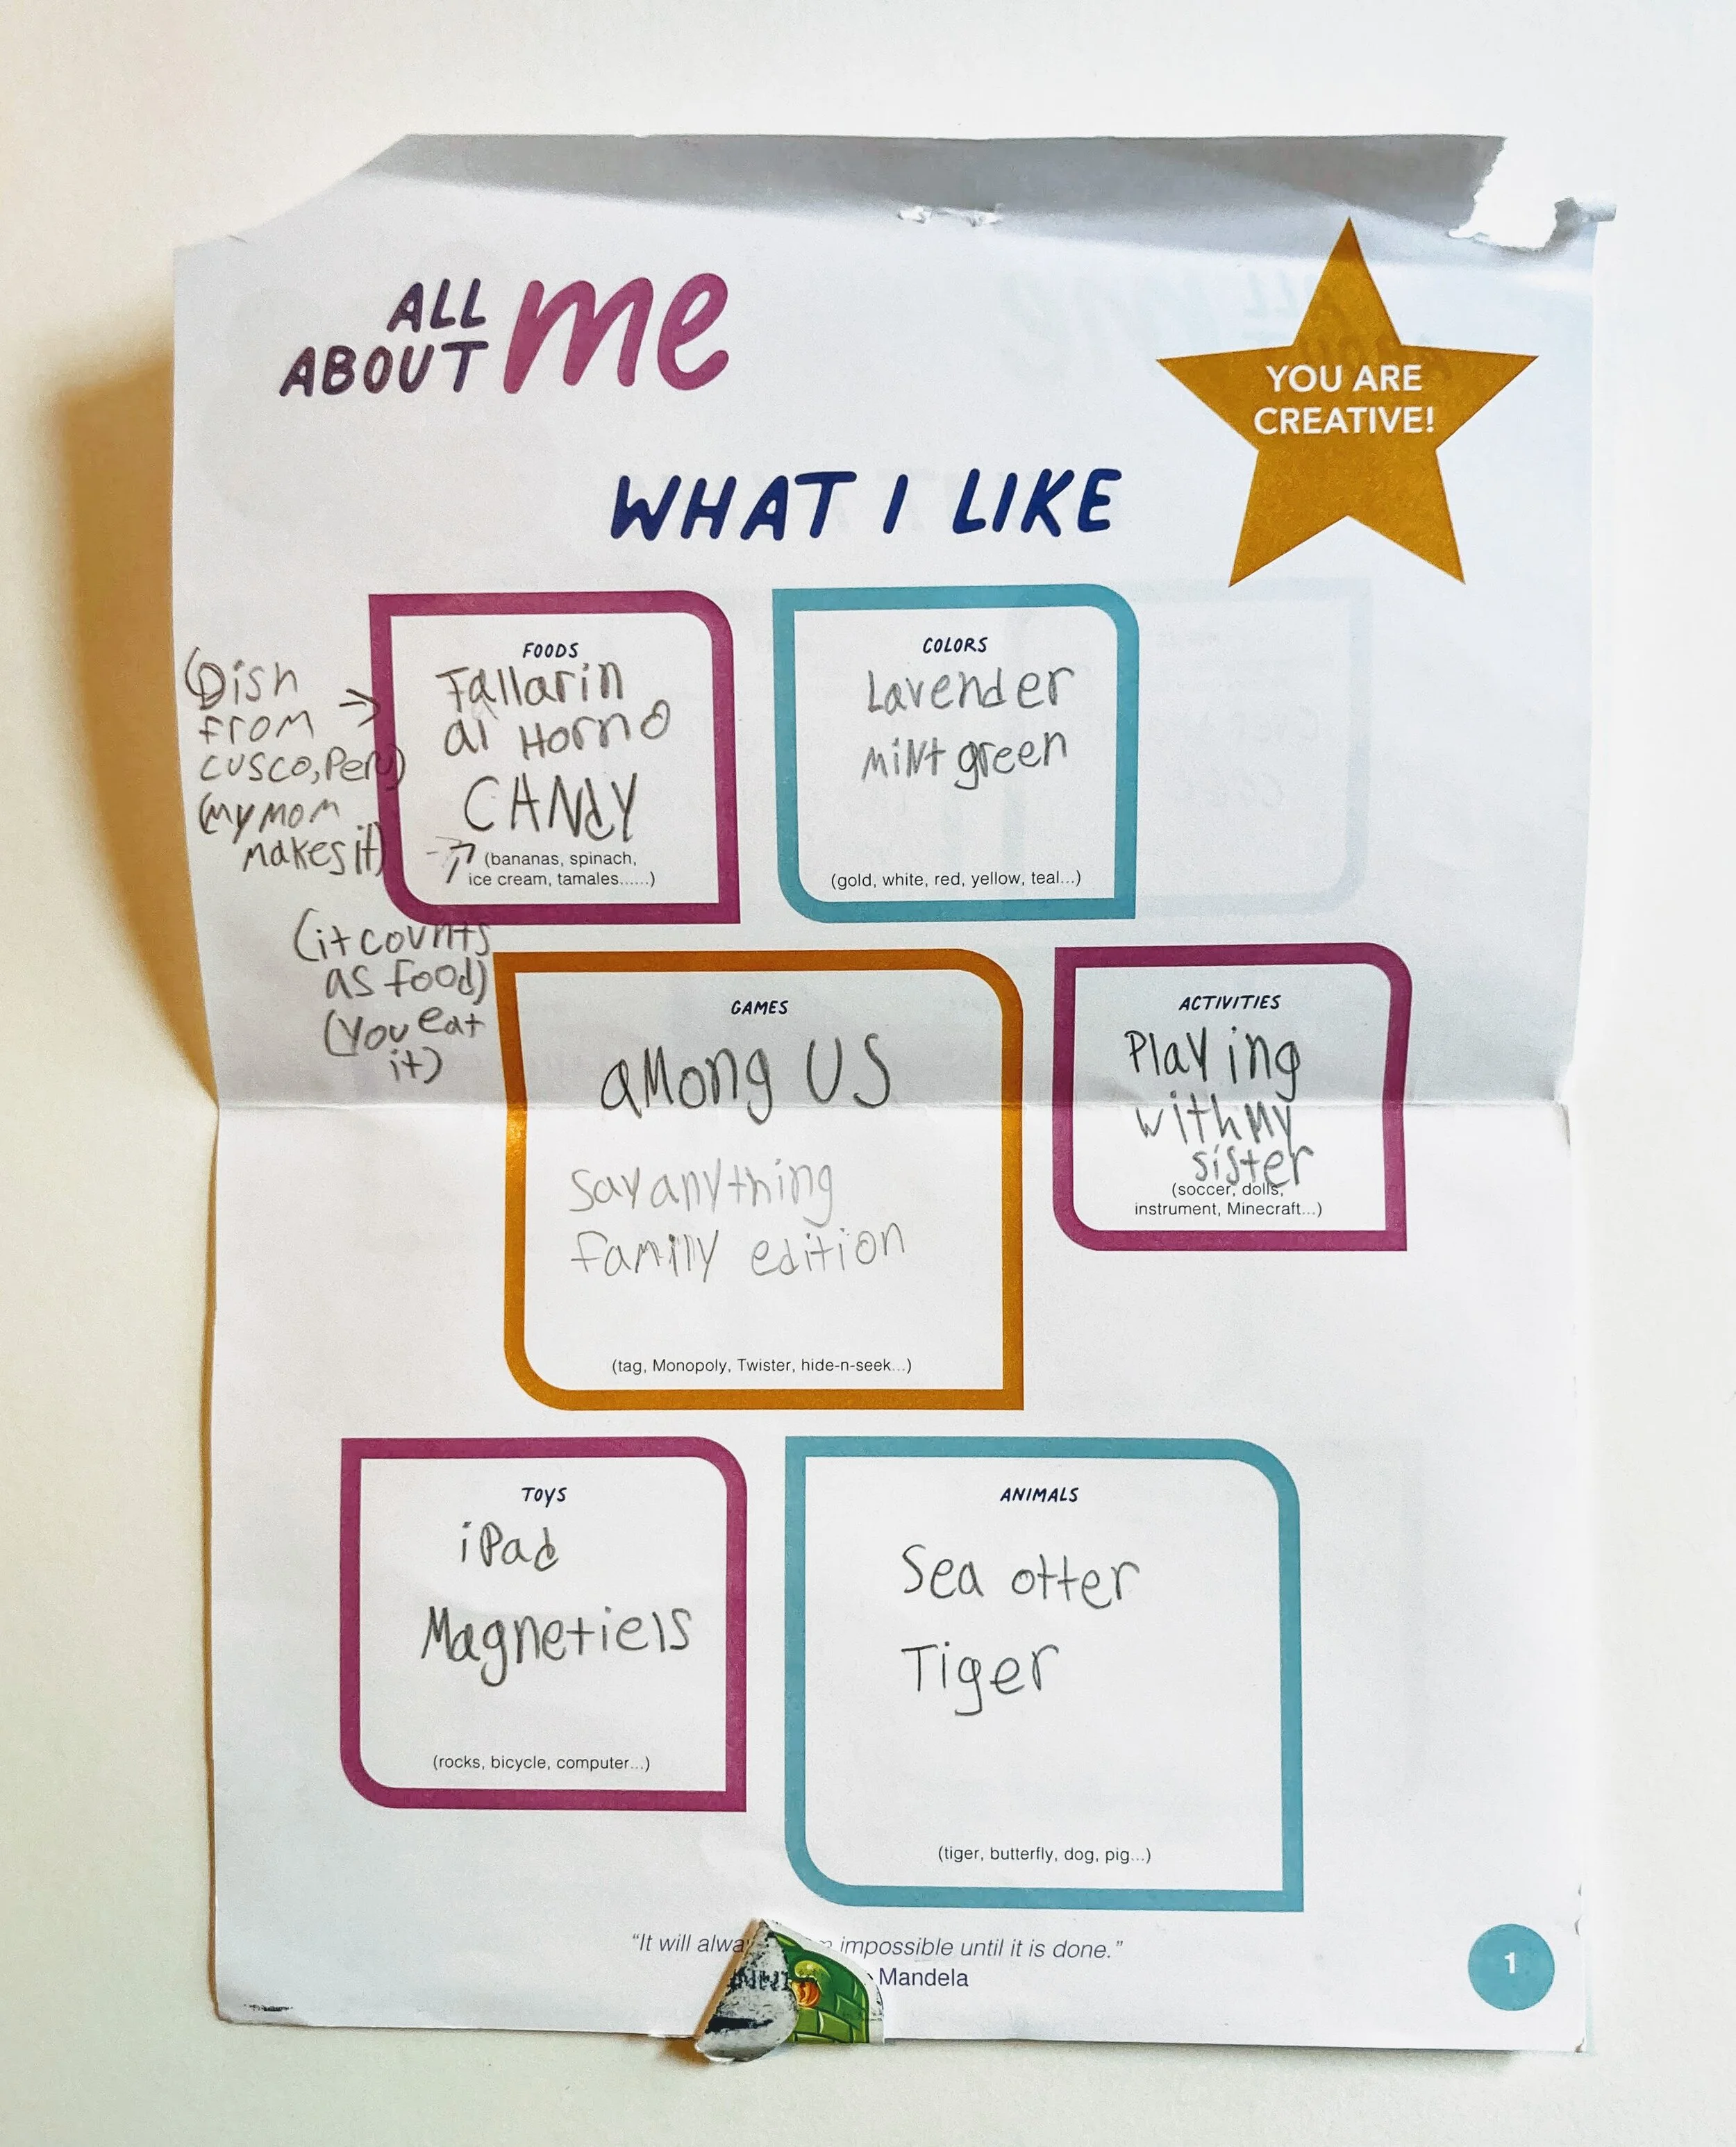 ALL
ABOUT me
YOU ARE
CREATIVE!
WHAT I LIKE
FOODS
Tallarin
al Horno
CANdY
(bananas, spinach,
ice cream, tamales......)
(Dish
from
cusco, Peru)
(my mom
makes it)
(it counts
as food)
(You eat
it)
COLORS
Lavender
Mint green
(gold, white, red, yellow, teal...)
GAMES
aMong US
Say anything
family edition
(tag, Monopoly, Twister, hide-n-seek...)
ACTIVITIES
Playing
with my
sister
(soccer, dolls,
instrument, Minecraft...)
TOYS
iPad
Magnetiels
(rocks, bicycle, computer...)
ANIMALS
Sea otter
Tiger
(tiger, butterfly, dog, pig...)
“It will impossible until it is done.”
Mandela
1